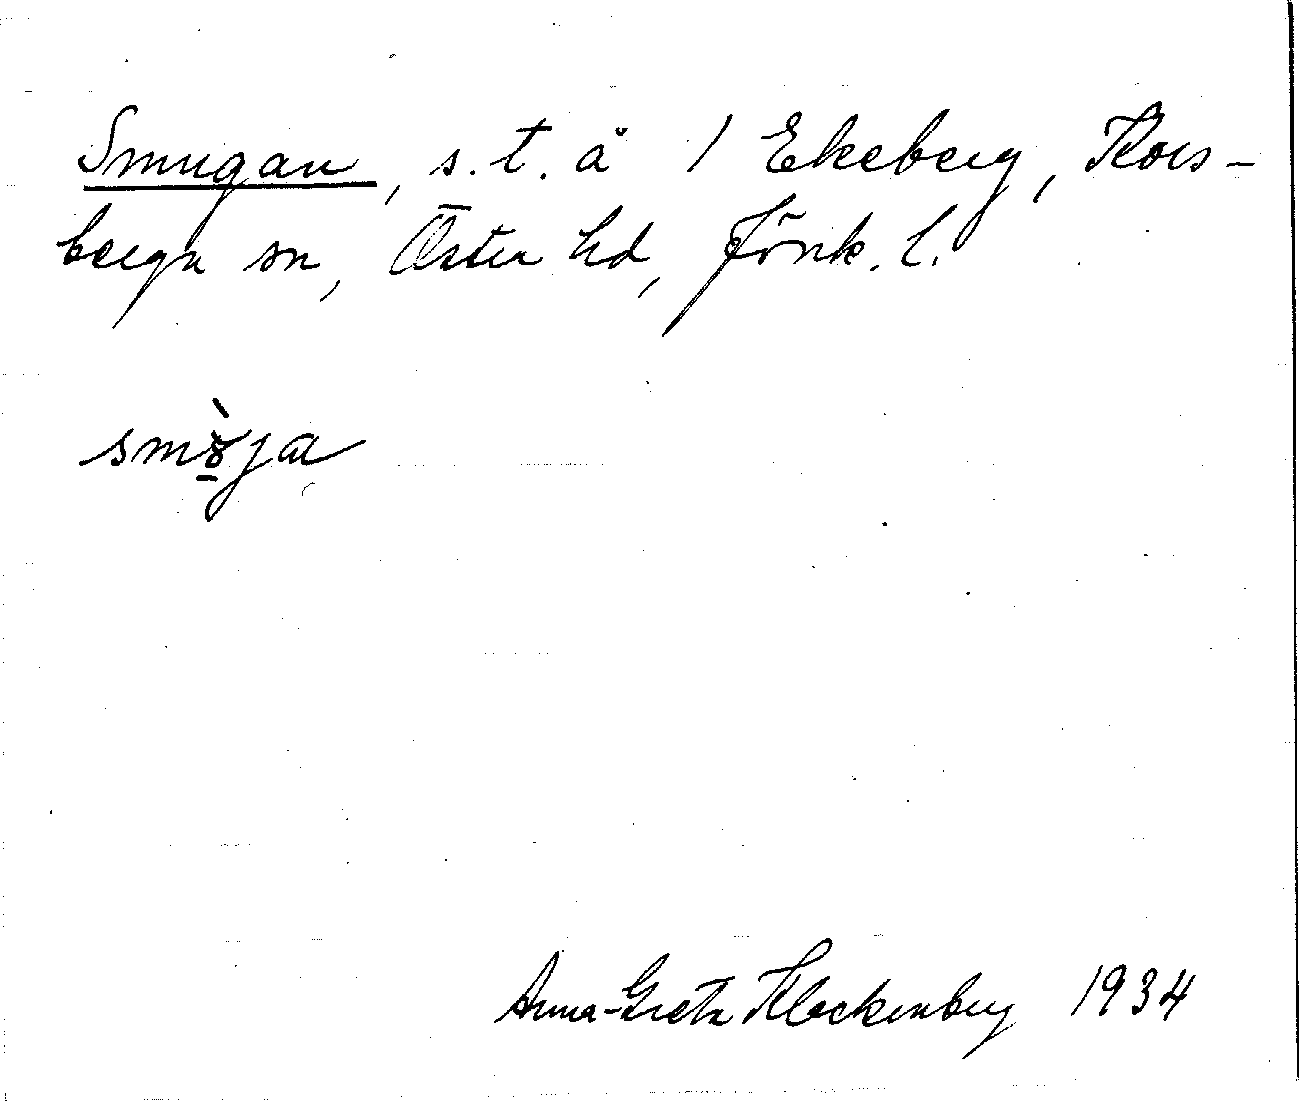 Smugan, s. t. å 1 Ekeberg, Kors-
berga sn, Östra hd, Jönk. l.
smò̱ja
Anna-Greta Klockenberg 1934